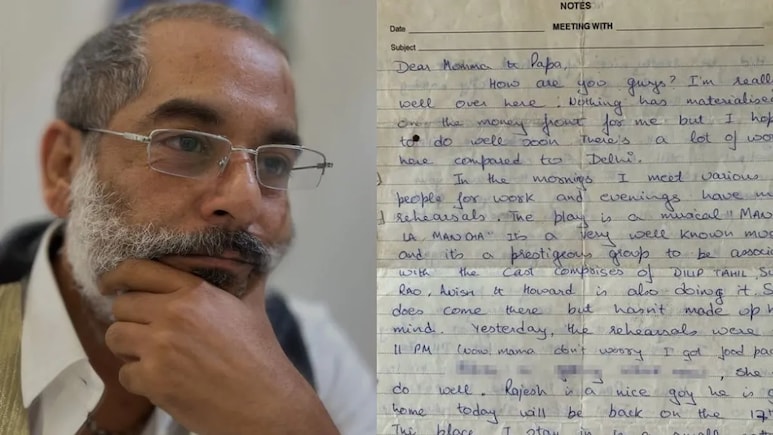 NOTES
Date MEETING WITH
Subject
Dear Momma & Papa,
How are you guys? I'm reall
well over here. Nothing has materialise
on the money front for me but I hop
to do well soon There's a lot of wor
here compared to Delhi.
In the mornings I meet various
people for work and evenings have m
rehearsals. The play is a musical "MAN
LA MANCHA" Its a very well known mus
and it's a prestigeous group to be assoc
with the cast comprises of DILIP TAHIL SU
RAO, Avish & Howard is also doing it. S
does come there but hasn't made up h
mind. Yesterday, the rehearsals were
11 PM (wow mama don't worry I got food pac
, She
do well. Rajesh is a nice guy he is g
home today will be back on the 17th
The place I stay in is a small